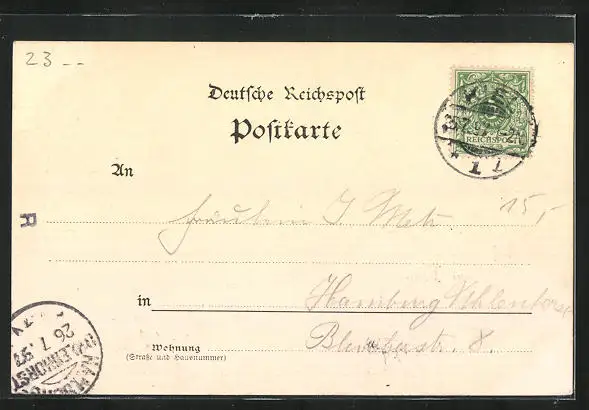 23 --
Deutsche Reichspost
Postkarte
REICHSPOST
An
Fräulein J. Metz
15,-
R
in Hamburg Uhlenhorst
Wohnung
(Straße und Hausnummer)
str. 8.
HAMBURG
UHLENHORST
26 7 97